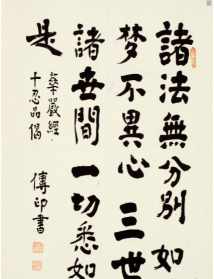 諸法無分別如
夢不異心三世
諸世間一切悉如
是
華嚴經·
十忍品偈
傳印書